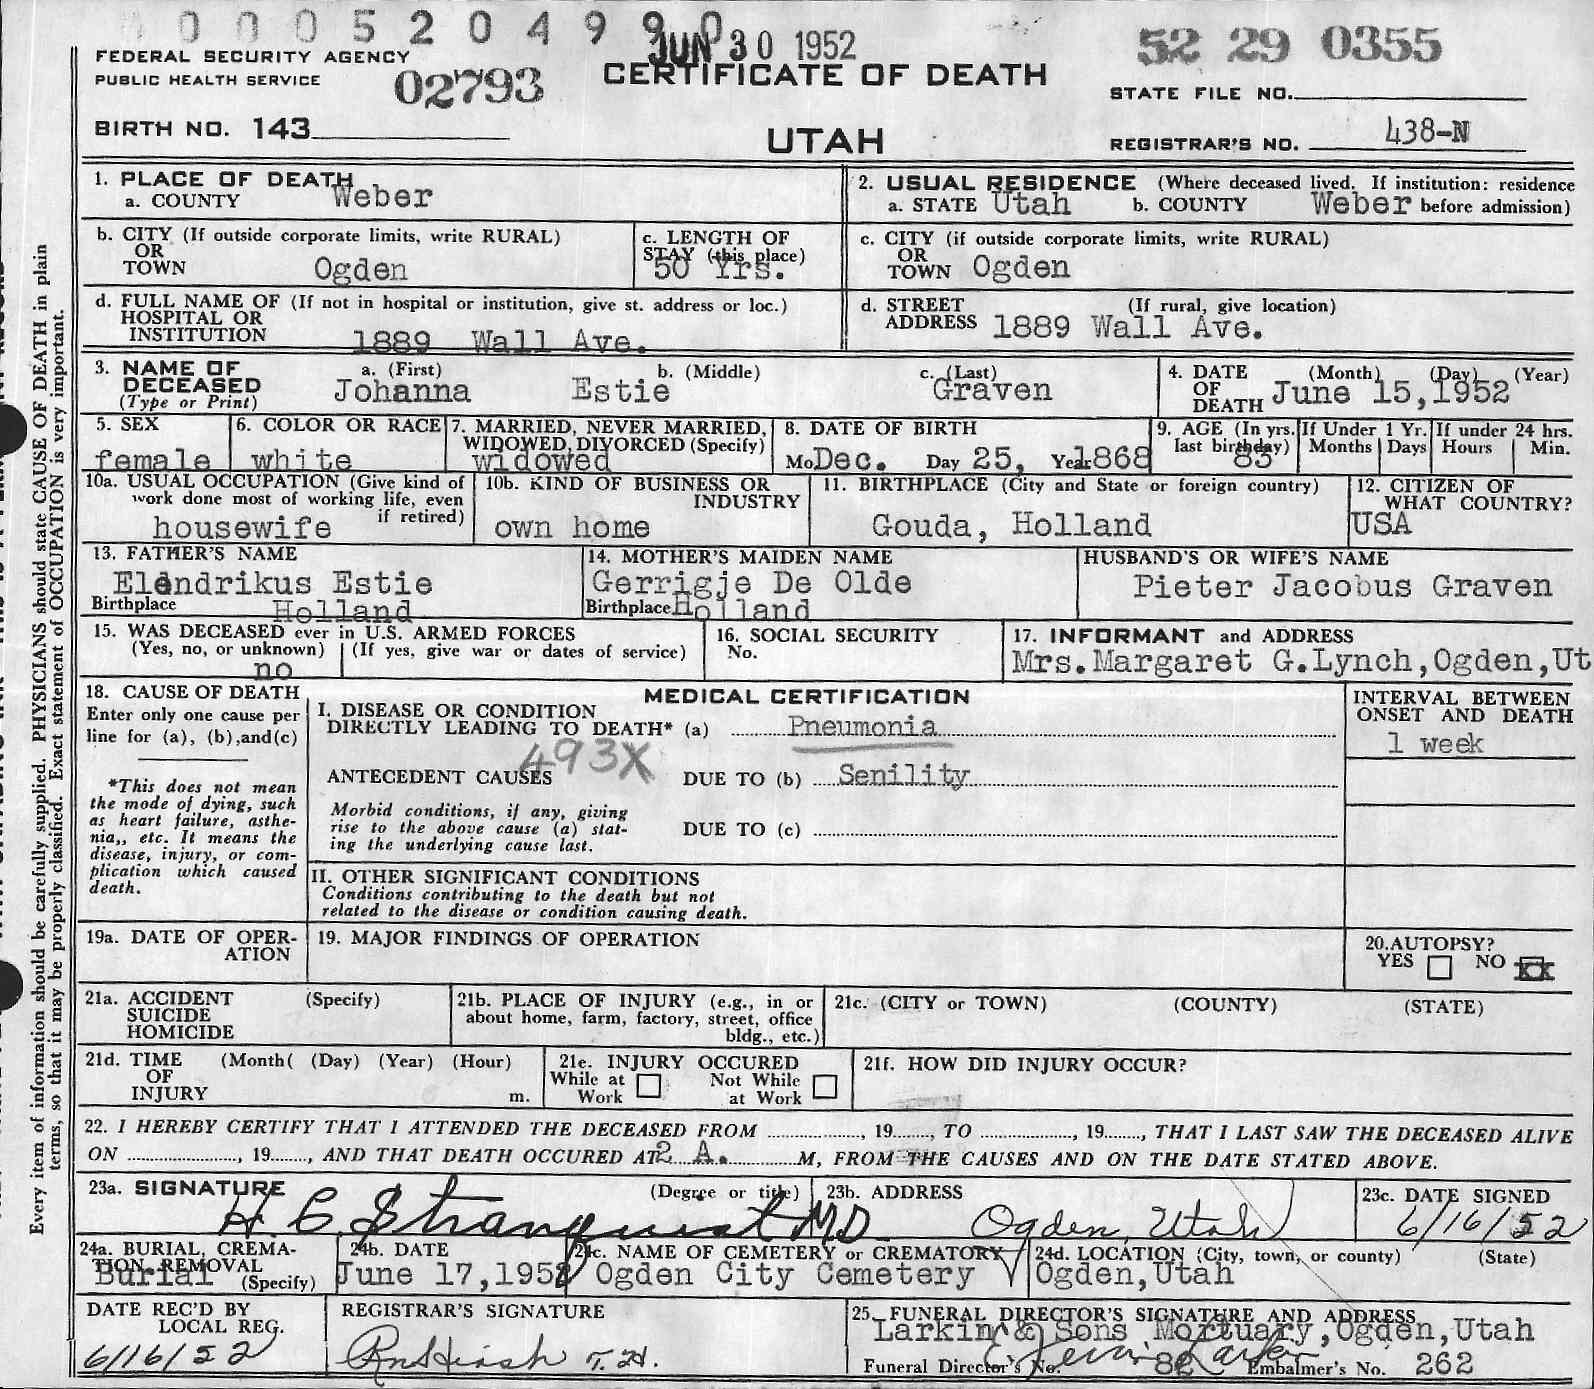 0 0 0 5 2 0 4 9 9 0
JUN 30 1952
52 29 0355
FEDERAL SECURITY AGENCY
PUBLIC HEALTH SERVICE
02793
CERTIFICATE OF DEATH
STATE FILE NO.
BIRTH NO. 143
UTAH
REGISTRAR'S NO. 438-N
1. PLACE OF DEATH
a. COUNTY Weber
2. USUAL RESIDENCE (Where deceased lived. If institution: residence
a. STATE Utah b. COUNTY Weber before admission)
b. CITY (If outside corporate limits, write RURAL)
OR
TOWN Ogden
c. LENGTH OF
STAY (this place)
50 Yrs.
c. CITY (if outside corporate limits, write RURAL)
OR
TOWN Ogden
d. FULL NAME OF (If not in hospital or institution, give st. address or loc.)
HOSPITAL OR
INSTITUTION 1889 Wall Ave.
d. STREET (If rural, give location)
ADDRESS 1889 Wall Ave.
3. NAME OF
DECEASED
(Type or Print)
a. (First) b. (Middle) c. (Last)
Johanna Estie Graven
4. DATE (Month) (Day) (Year)
OF
DEATH June 15,1952
5. SEX
female
6. COLOR OR RACE
white
7. MARRIED, NEVER MARRIED,
WIDOWED, DIVORCED (Specify)
widowed
8. DATE OF BIRTH
Mo Dec. Day 25, Year 1868
9. AGE (In yrs.
last birthday)
83
If Under 1 Yr.
Months Days
If under 24 hrs.
Hours Min.
10a. USUAL OCCUPATION (Give kind of
work done most of working life, even
if retired)
housewife
10b. KIND OF BUSINESS OR
INDUSTRY
own home
11. BIRTHPLACE (City and State or foreign country)
Gouda, Holland
12. CITIZEN OF
WHAT COUNTRY?
USA
13. FATHER'S NAME
Elendrikus Estie
Birthplace Holland
14. MOTHER'S MAIDEN NAME
Gerrigje De Olde
Birthplace Holland
HUSBAND'S OR WIFE'S NAME
Pieter Jacobus Graven
15. WAS DECEASED ever in U.S. ARMED FORCES
(Yes, no, or unknown) (If yes, give war or dates of service)
no
16. SOCIAL SECURITY
No.
17. INFORMANT and ADDRESS
Mrs.Margaret G.Lynch,Ogden,Ut
18. CAUSE OF DEATH
Enter only one cause per
line for (a), (b),and(c)
*This does not mean
the mode of dying, such
as heart failure, asthe-
nia,, etc. It means the
disease, injury, or com-
plication which caused
death.
MEDICAL CERTIFICATION
I. DISEASE OR CONDITION
DIRECTLY LEADING TO DEATH* (a) Pneumonia
493X
ANTECEDENT CAUSES DUE TO (b) Senility
Morbid conditions, if any, giving
rise to the above cause (a) stat-
ing the underlying cause last.
DUE TO (c)
INTERVAL BETWEEN
ONSET AND DEATH
1 week
II. OTHER SIGNIFICANT CONDITIONS
Conditions contributing to the death but not
related to the disease or condition causing death.
19a. DATE OF OPER-
ATION
19. MAJOR FINDINGS OF OPERATION
20.AUTOPSY?
YES NO XX
21a. ACCIDENT (Specify)
SUICIDE
HOMICIDE
21b. PLACE OF INJURY (e.g., in or
about home, farm, factory, street, office
bldg., etc.)
21c. (CITY or TOWN) (COUNTY) (STATE)
21d. TIME (Month( (Day) (Year) (Hour)
OF
INJURY m.
21e. INJURY OCCURED
While at Work Not While at Work
21f. HOW DID INJURY OCCUR?
22. I HEREBY CERTIFY THAT I ATTENDED THE DECEASED FROM , 19 , TO , 19 , THAT I LAST SAW THE DECEASED ALIVE
ON , 19 , AND THAT DEATH OCCURED AT 2 A. M, FROM THE CAUSES AND ON THE DATE STATED ABOVE.
23a. SIGNATURE (Degree or title)
H. C. Stranquist M.D.
23b. ADDRESS
Ogden, Utah
23c. DATE SIGNED
6/16/52
24a. BURIAL, CREMA-
TION, REMOVAL
(Specify)
Burial
24b. DATE
June 17,1952
24c. NAME OF CEMETERY or CREMATORY
Ogden City Cemetery
24d. LOCATION (City, town, or county) (State)
Ogden,Utah
DATE REC'D BY
LOCAL REG.
6/16/52
REGISTRAR'S SIGNATURE
25. FUNERAL DIRECTOR'S SIGNATURE AND ADDRESS
Larkin & Sons Mortuary,Ogden,Utah
Funeral Director's No. 82 Embalmer's No. 262
Every item of information should be carefully supplied. PHYSICIANS should state CAUSE OF DEATH in plain
terms, so that it may be properly classified. Exact statement of OCCUPATION is very important.